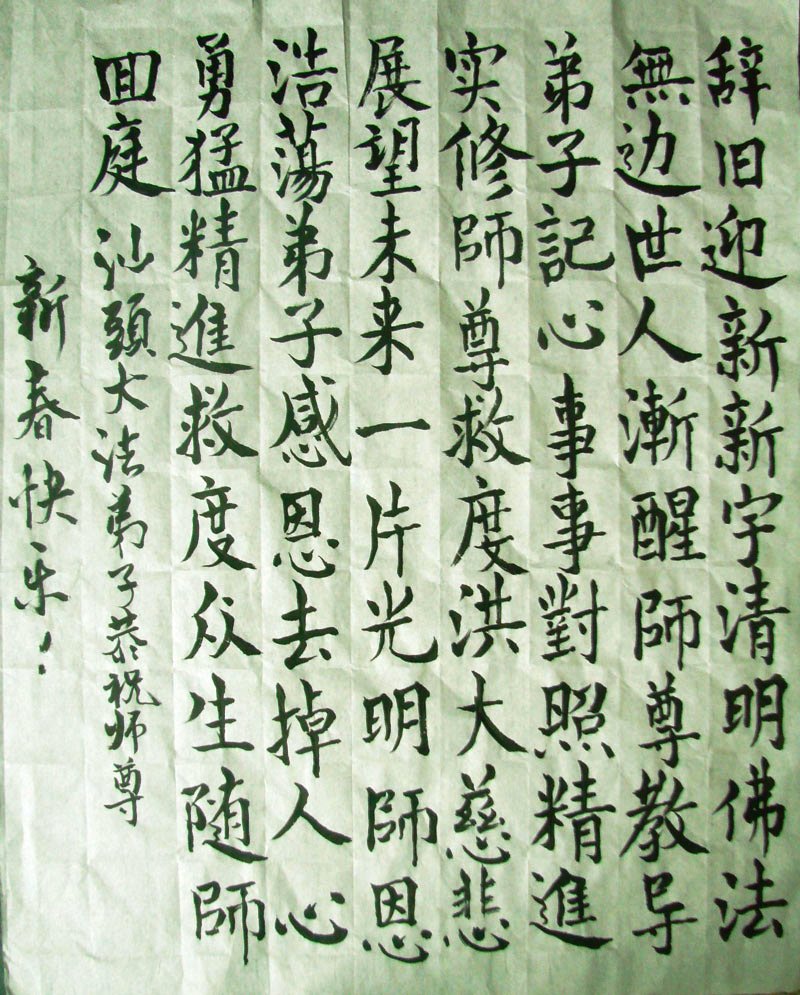 辞旧迎新新宇清明佛法
無边世人漸醒師尊教导
弟子記心事事對照精進
实修師尊救度洪大慈悲
展望未来一片光明師恩
浩蕩弟子感恩去掉人心
勇猛精進救度众生随師
回庭
汕頭大法弟子恭祝师尊
新春快乐！